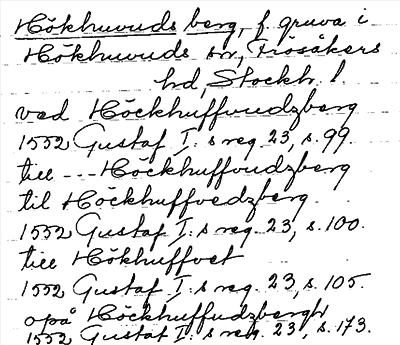 Hökhuvuds berg, f. gruva i
Hökhuvuds sn, Frösåkers
hd, Stockh. l.
ved Höckhuffvudzberg
1552 Gustaf I:s reg. 23, s. 99.
till --- Höckhuffvudzberg
til Höckhuffvedzberg
1552 Gustaf I:s reg. 23, s. 100.
till Hökhuffvet
1552 Gustaf I:s reg. 23, s. 105.
opå Höckhuffudzbergh
1552 Gustaf I:s reg. 23, s. 173.